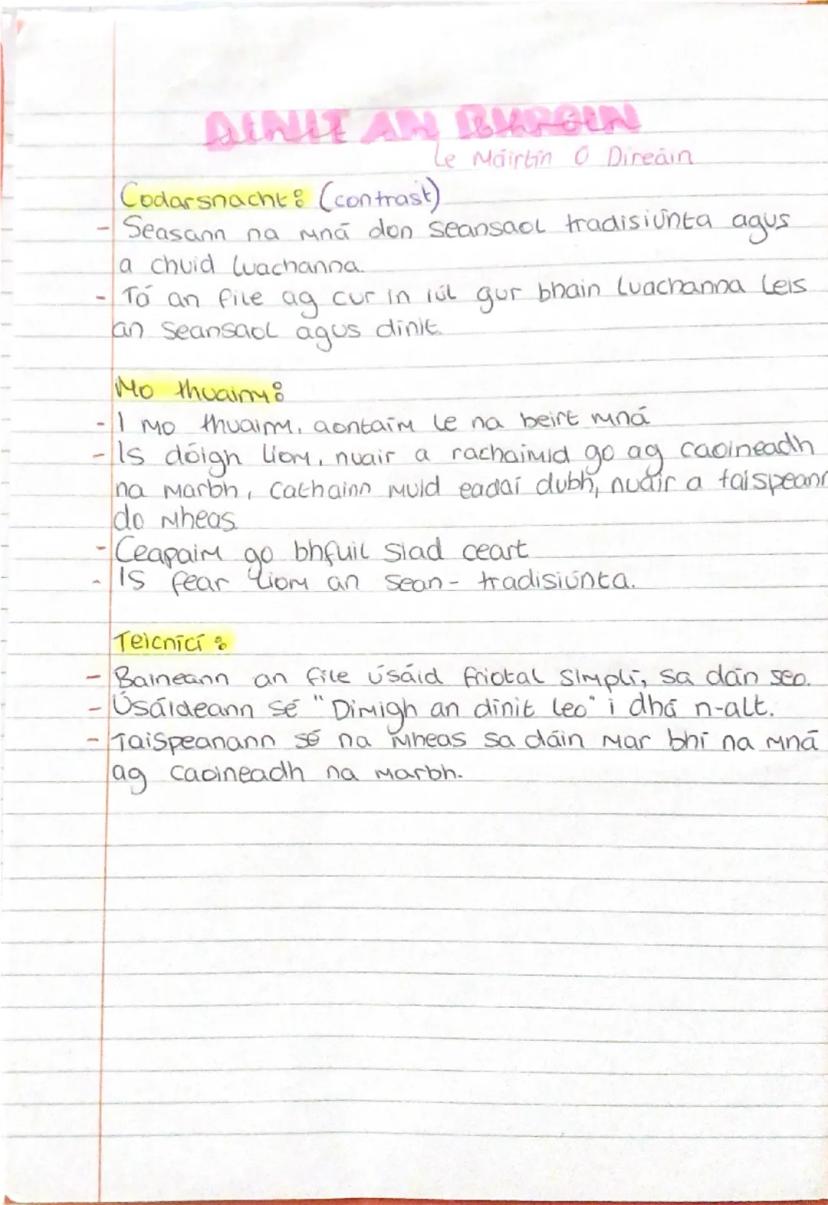 DÍNIT AN BHRÓIN
le Máirtín Ó Direáin
Codarsnacht: (contrast)
- Seasann na mná don seansaol tradisiúnta agus
a chuid luachanna.
- Tá an file ag cur in iúl gur bhain luachanna leis
an seansaol agus dínit.
Mo thuaim:
- I mo thuaim, aontaím le na beirt mná
- Is dóigh liom, nuair a rachaimid go ag caoineadh
na marbh, cathainn muid eadaí dubh, nuair a taispeann
do mheas
- Ceapaim go bhfuil siad ceart
- Is fear liom an sean- tradisiúnta.
Teicnící:
- Baineann an file úsáid friotal simplí, sa dán seo.
- Úsáideann sé "Dimigh an dínit leo" i dhá n-alt.
- Taispeanann sé na mheas sa dáin mar bhí na mná
ag caoineadh na marbh.